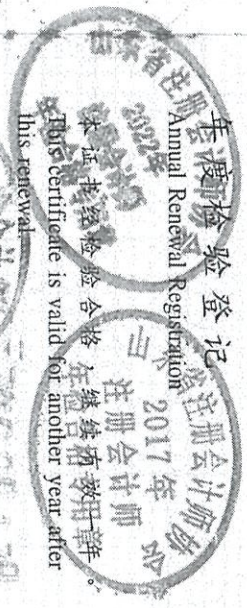 年度检验登记
Annual Renewal Registration
本证书经检验合格，继续有效一年。
This certificate is valid for another year after
this renewal.
2022年
山东省注册会计师协会
2017年
注册会计师
年检合格专用章